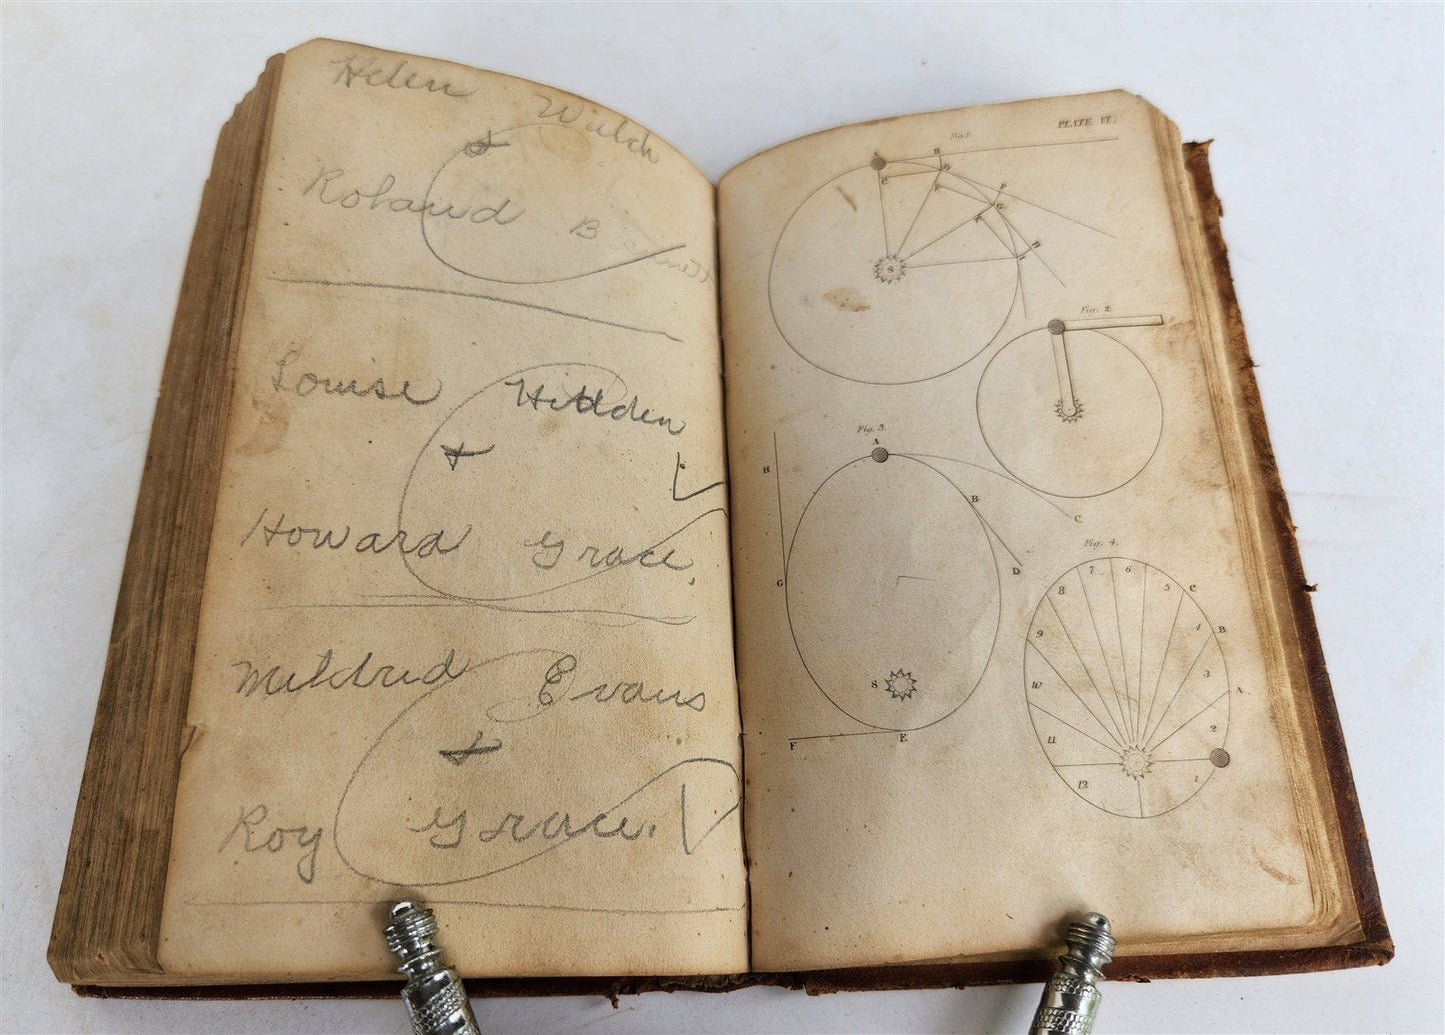 Helen Welch
Roland Bennett
Louise Hidden
Howard Grace.
Mildred Evans
Roy Grace.
PLATE VI.
Fig. 2.
Fig. 3.
A
H
B
C
G
D
S
F
E
Fig. 4.
7
6
5
C
8
4
B
9
3
10
A
11
2
12
1